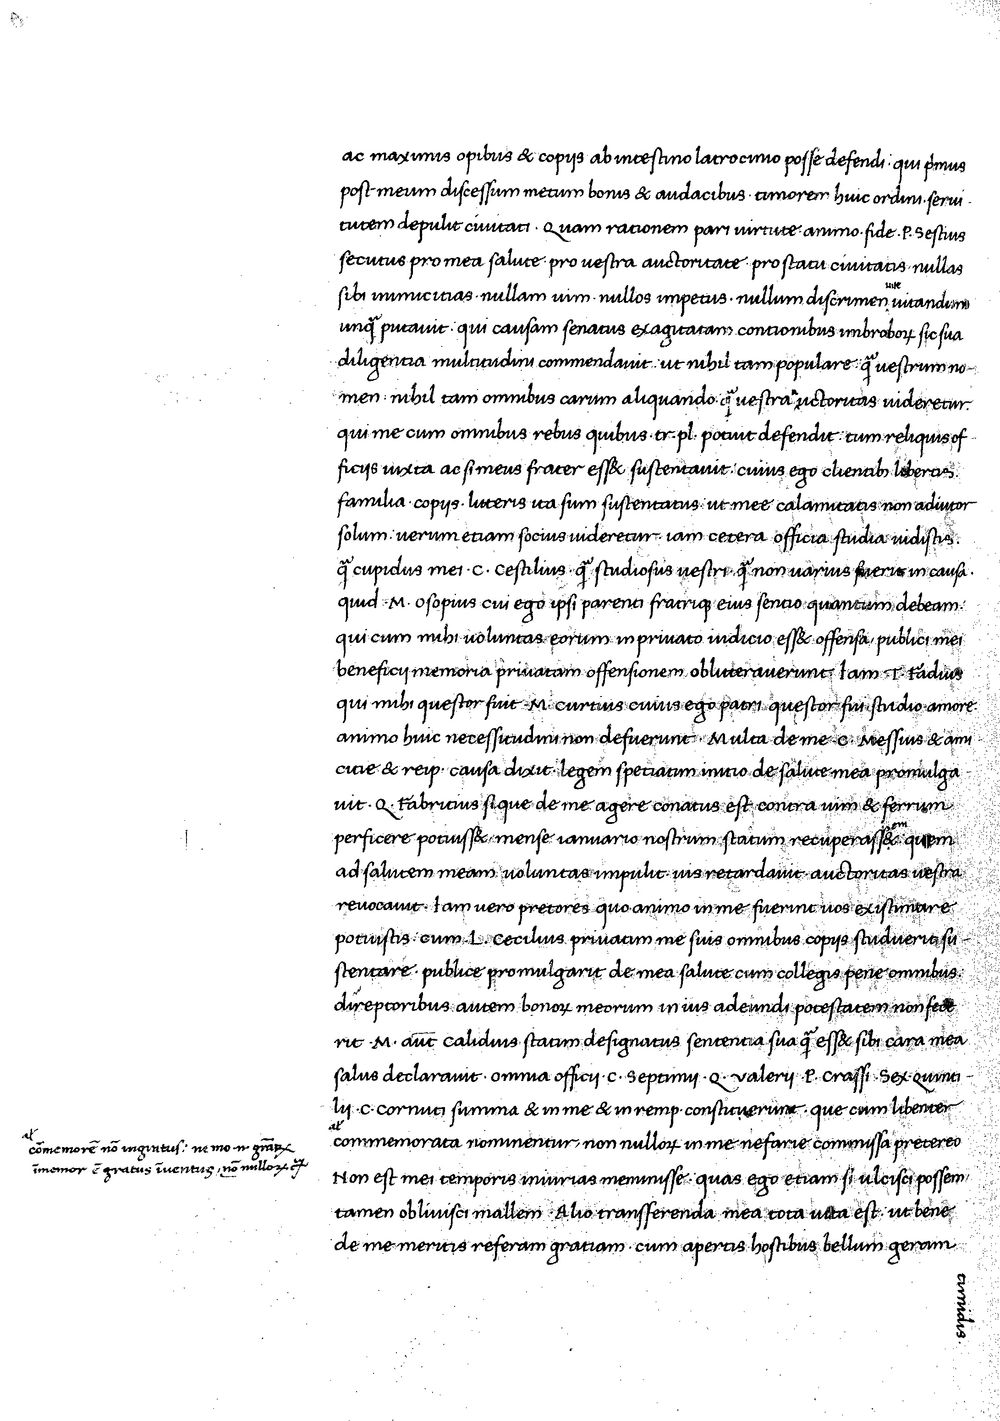 ac maximis opibus & copijs ab intestino latrocinio posse defendi · qui pͥmus
post meum discessum metum bonis & audacibus · timorem huic ordini · serui ·
tutem depulit ciuitati · Quam rationem pari uirtute · animo · fide · P. Sestius
secutus pro mea salute · pro uestra auctoritate · pro statu ciuitatis · nullas
sibi inimicitias · nullam uim · nullos impetus · nullum discrimen uite uitandum
unqᷓ putauit · qui causam senatus exagitatam contionibus imbroboꝝ sic sua
diligentia multitudini commendauit · ut nihil tam populare · qᷓ uestrum no-
men · nihil tam omnibus carum aliquando · qᷓ uestra auctoritas uideretur.
qui me cum omnibus rebus quibus · tr · pl · potuit defendit · tum reliquis of
ficijs iuxta ac si meus frater ess& sustentauit · cuius ego clientibꝫ libertis.
familia · copijs · litteris ita sum sustentatus · ut mee calamitatis non adiutor
solum · uerum etiam socius uideretur · iam cetera officia studia uidistis.
qᷓ cupidus mei · C · Cestilius · qᷓ studiosus uestri · qᷓ non uarius fuerit in causa ·
quid · M · osopius cui ego ipsi parenti fratriqꝫ eius sentio quantum debeam.
qui cum mihi uoluntas eorum in priuato iudicio ess& offensa, publici mei
beneficij memoria priuatam offensionem oblitterauerunt · Iam · T · Fadius
qui mihi questor fuit · M · curtius cuius ego patri questor fui · studio amore
animo huic necessitudini non defuerunt · Multa de me · C · Messius & ami
citie & reip · causa dixit · legem spetiatim initio de salute mea promulga -
uit · Q · Fabricius si que de me agere conatus est contra uim & ferrum
perficere potuiss& · mense ianuario nostrum statum recuperass& · quem
ad salutem meam uoluntas impulit · uis retardauit · auctoritas uestra
reuocauit · Iam uero pretores quo animo in me fuerint uos existimare
potuistis · cum · L · Cecilius priuatim me suis omnibus copijs studuerit su -
stentare · publice promulgarit de mea salute cum collegis pene omnibus.
direptoribus autem bonoꝝ meorum in ius adeundi potestatem non fece
rit · M · aut̅ Calidius statim designatus sententia sua qᷓ ess& sibi cara mea
salus declarauit · omnia officij · C · Septimij · Q · Valerij · P. Crassi · Sex · Quinti -
lij · C · cornuti summa & in me & in remp · constituerunt · que cum libenter
al̕
commemorata nominentur · non nulloꝝ in me nefarie commissa pretereo
Non est mei temporis iniurias meminisse · quas ego etiam si ulcisci possem,
tamen obliuisci mallem · Alio transferenda mea tota uita est · ut bene
de me meritis referam gratiam · cum apertis hostibus bellum geram
timidis.
al̕
co̅memore̅ no̅ ingratus:
i̅memor e̅ gratus , no̅ nulloꝝ